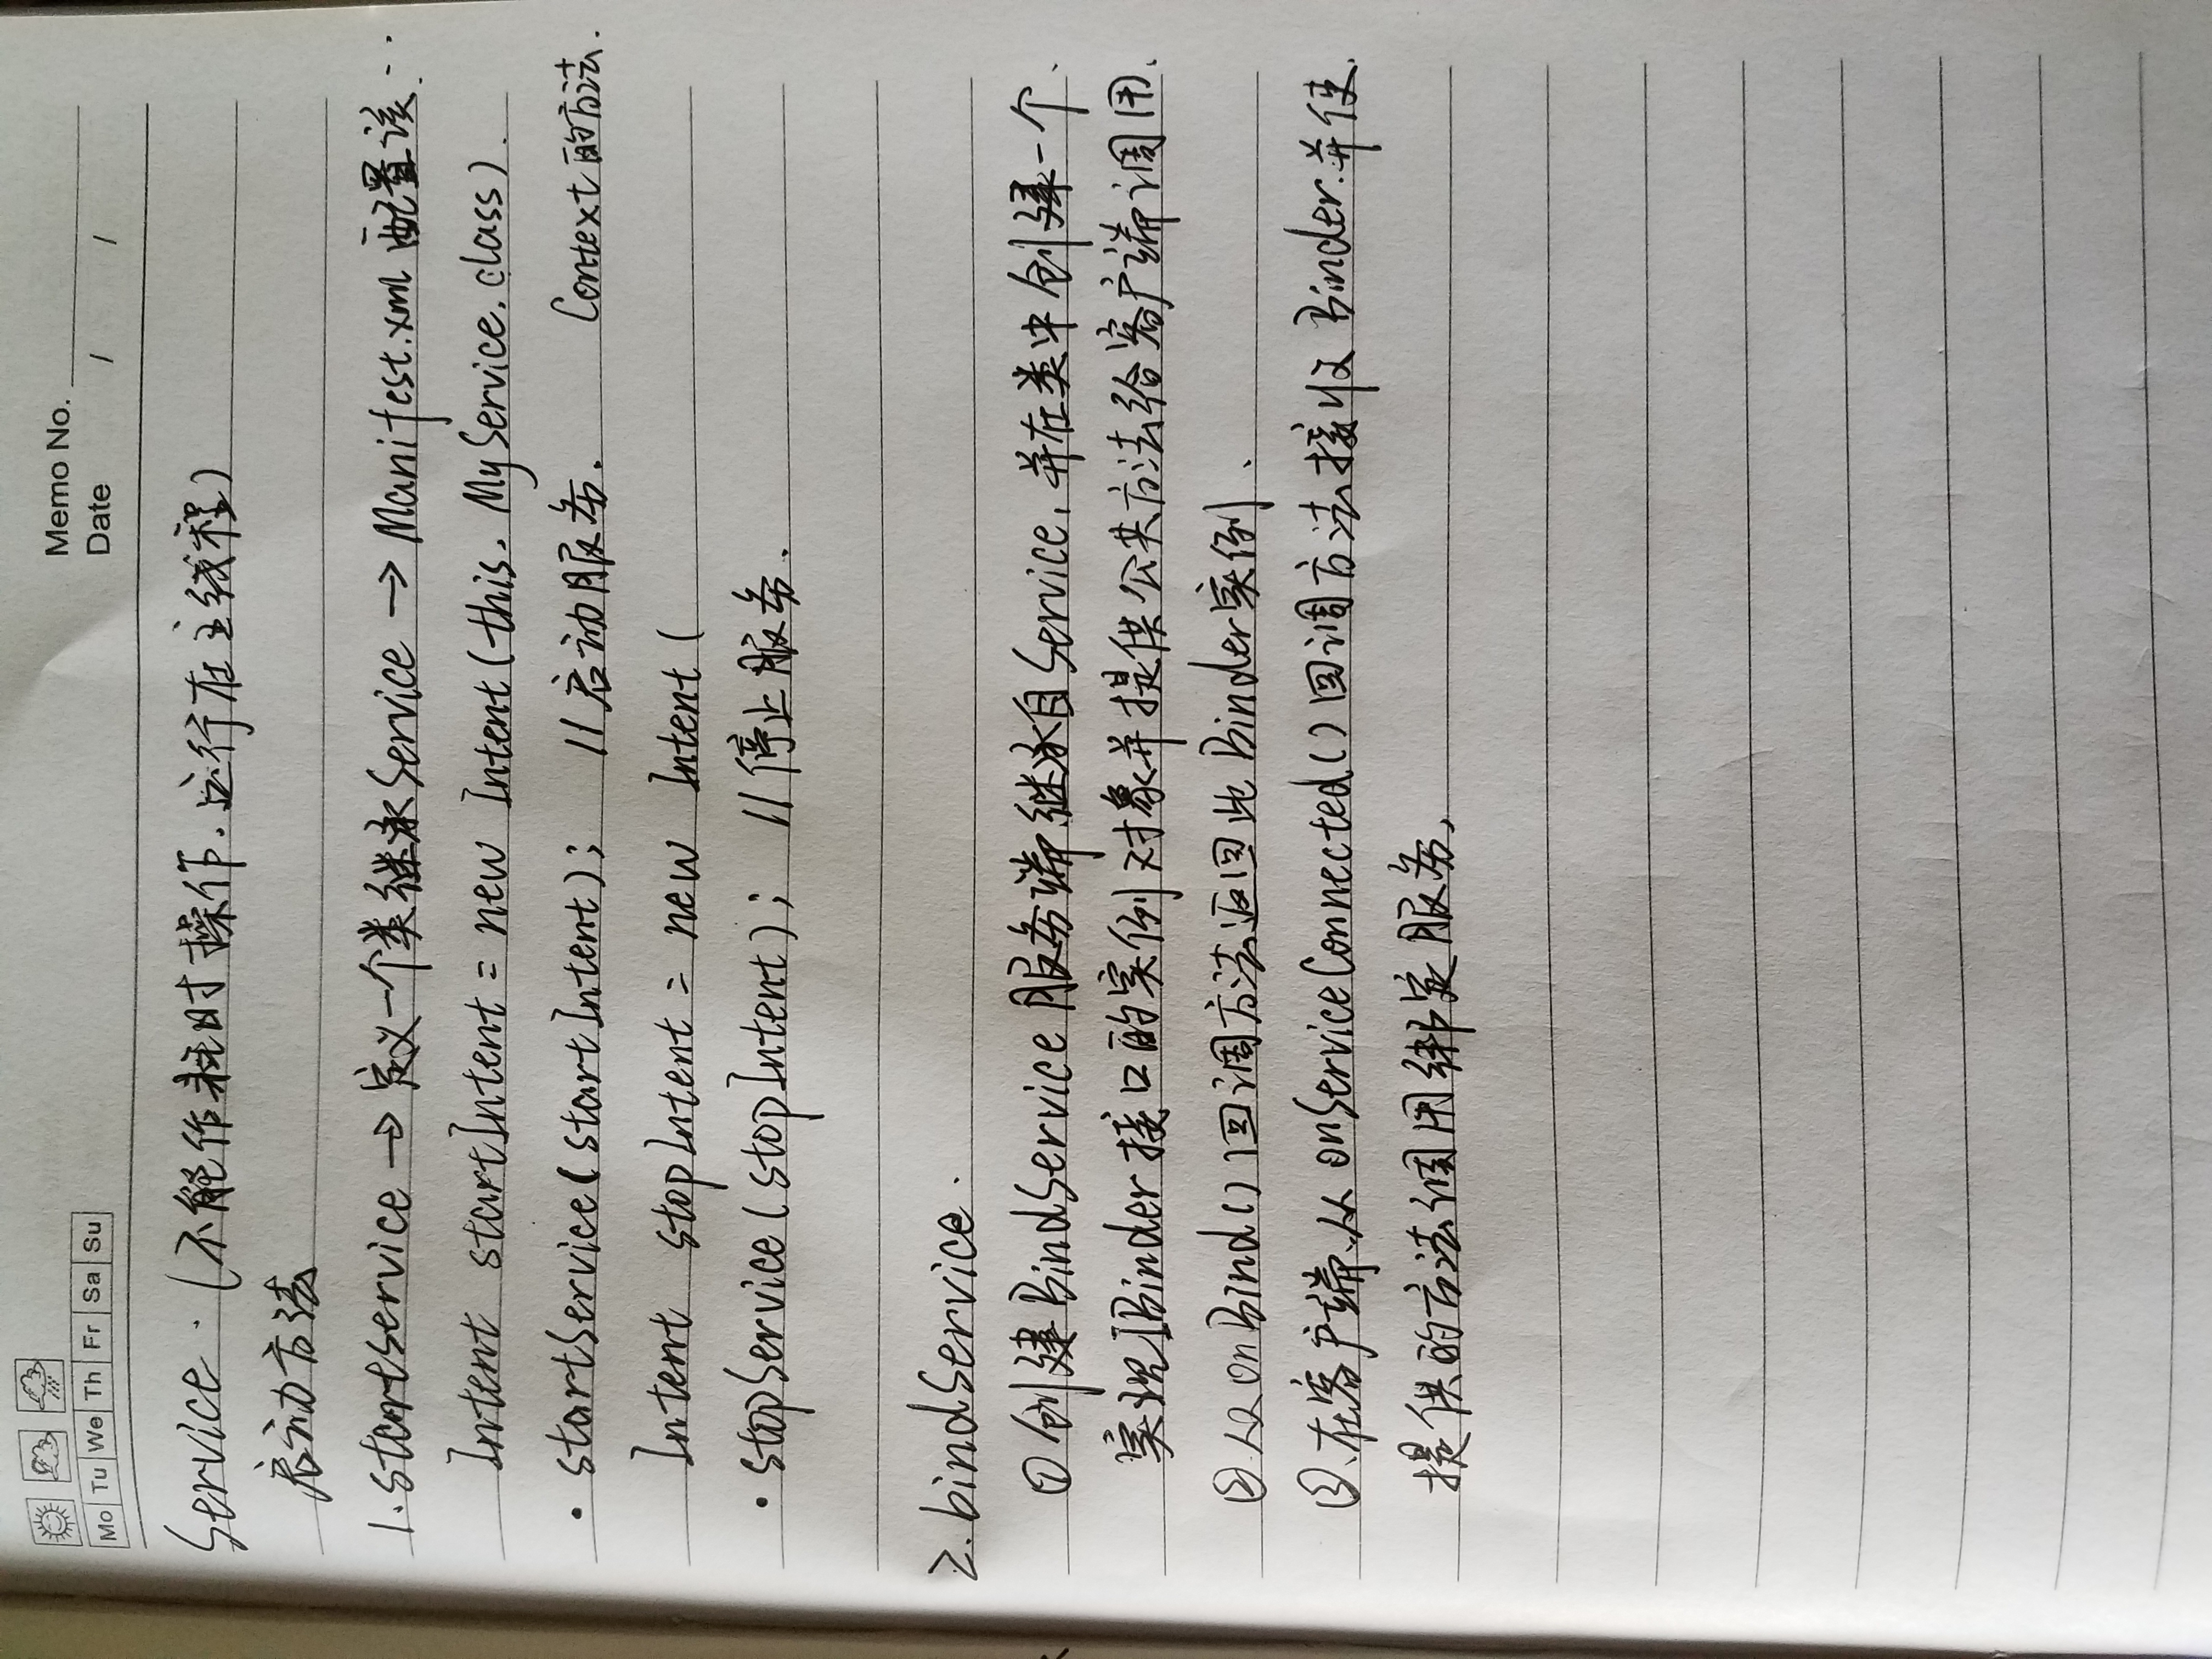 Memo No.
Mo Tu We Th Fr Sa Su
Date / /
Service.(不能作耗时操作.运行在主线程)
启动方法
1.startservice → 定义一个类继承Service → Manifest.xml 配置该..
Intent startIntent = new Intent(this. MyService.class).
· startService(startIntent); //启动服务. Context的方法.
Intent stopIntent = new Intent(
· stopService(stopIntent); //停止服务.
2.bindService.
①创建BindService服务端,继承自Service,并在类中创建一个、
实现IBinder接口的实例对象并提供公共方法给客户端调用、
②从onBind()回调方法返回此Binder实例、
③、在客户端、从onServiceConnected()回调方法接收Binder.并使.
提供的方法调用绑定服务,